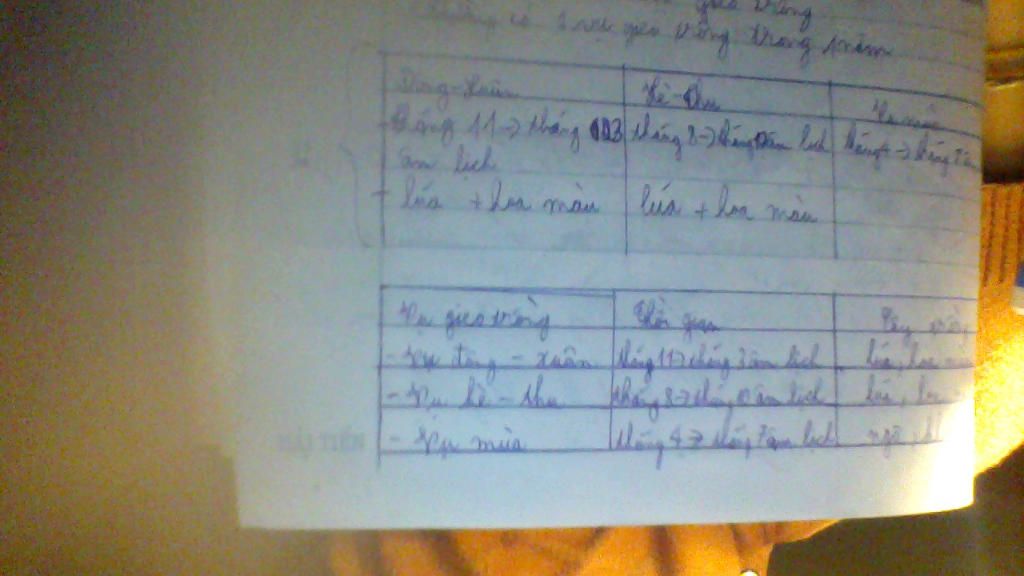 gieo trồng
có 3 vụ gieo trồng trong năm
Đông-Xuân Hè-Thu Vụ mùa
- tháng 11 -> tháng 3 tháng 8 -> tháng 10 âm lịch tháng 4 -> tháng 7 âm
âm lịch
- lúa + hoa màu lúa + hoa màu
Vụ gieo trồng Thời gian Cây trồng
- Vụ đông - xuân tháng 11 -> tháng 3 âm lịch lúa, hoa màu
- Vụ hè - thu tháng 8 -> tháng 10 âm lịch lúa, hoa
- Vụ mùa tháng 4 -> tháng 7 âm lịch ngô,